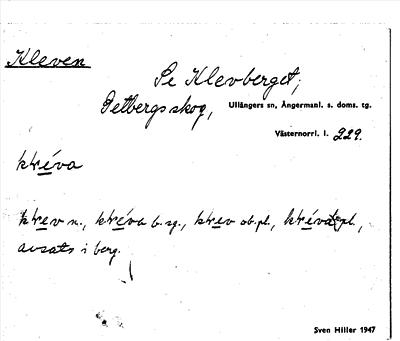 Kleven
Se Klevberget,
Getbergsskog, Ullångers sn, Ångermanl. s. doms. tg.
Västernorrl. l. 229.
kréva
krev n., kréva b. sg., krev ob. pl., pl.,
avsats i berg.
Sven Hiller 1947